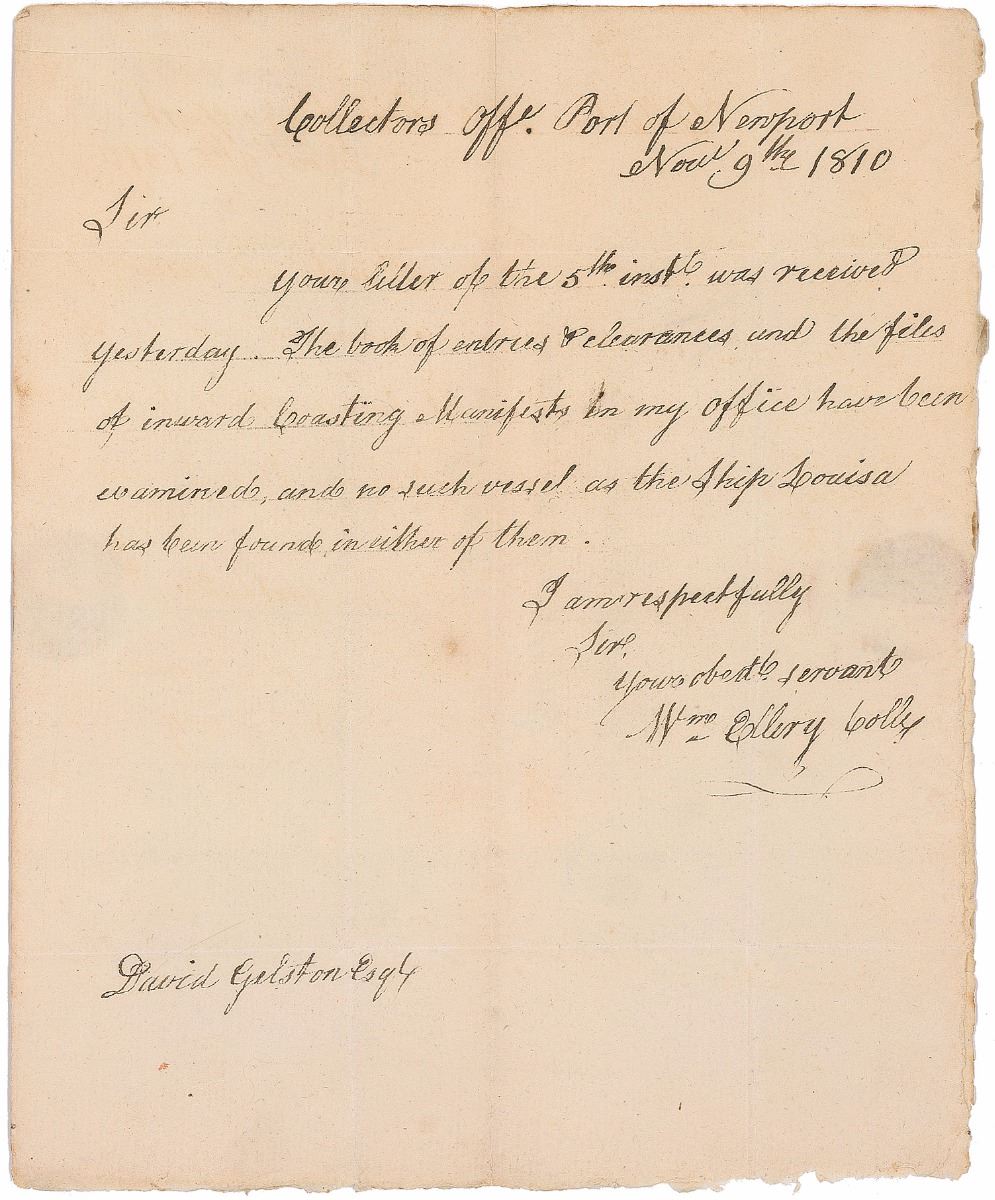 Collectors Offe. Port of Newport
Novr 9th 1810
Sir
Your letter of the 5th instt. was received
yesterday. The book of entries & clearances and the files
of inward Coasting Manifests in my office have been
examined, and no such vessel as the Ship Louisa
has been found in either of them.
I am respectfully
Sir,
Your obedt. servant
Wm Ellery Collr
David Gelston Esqr